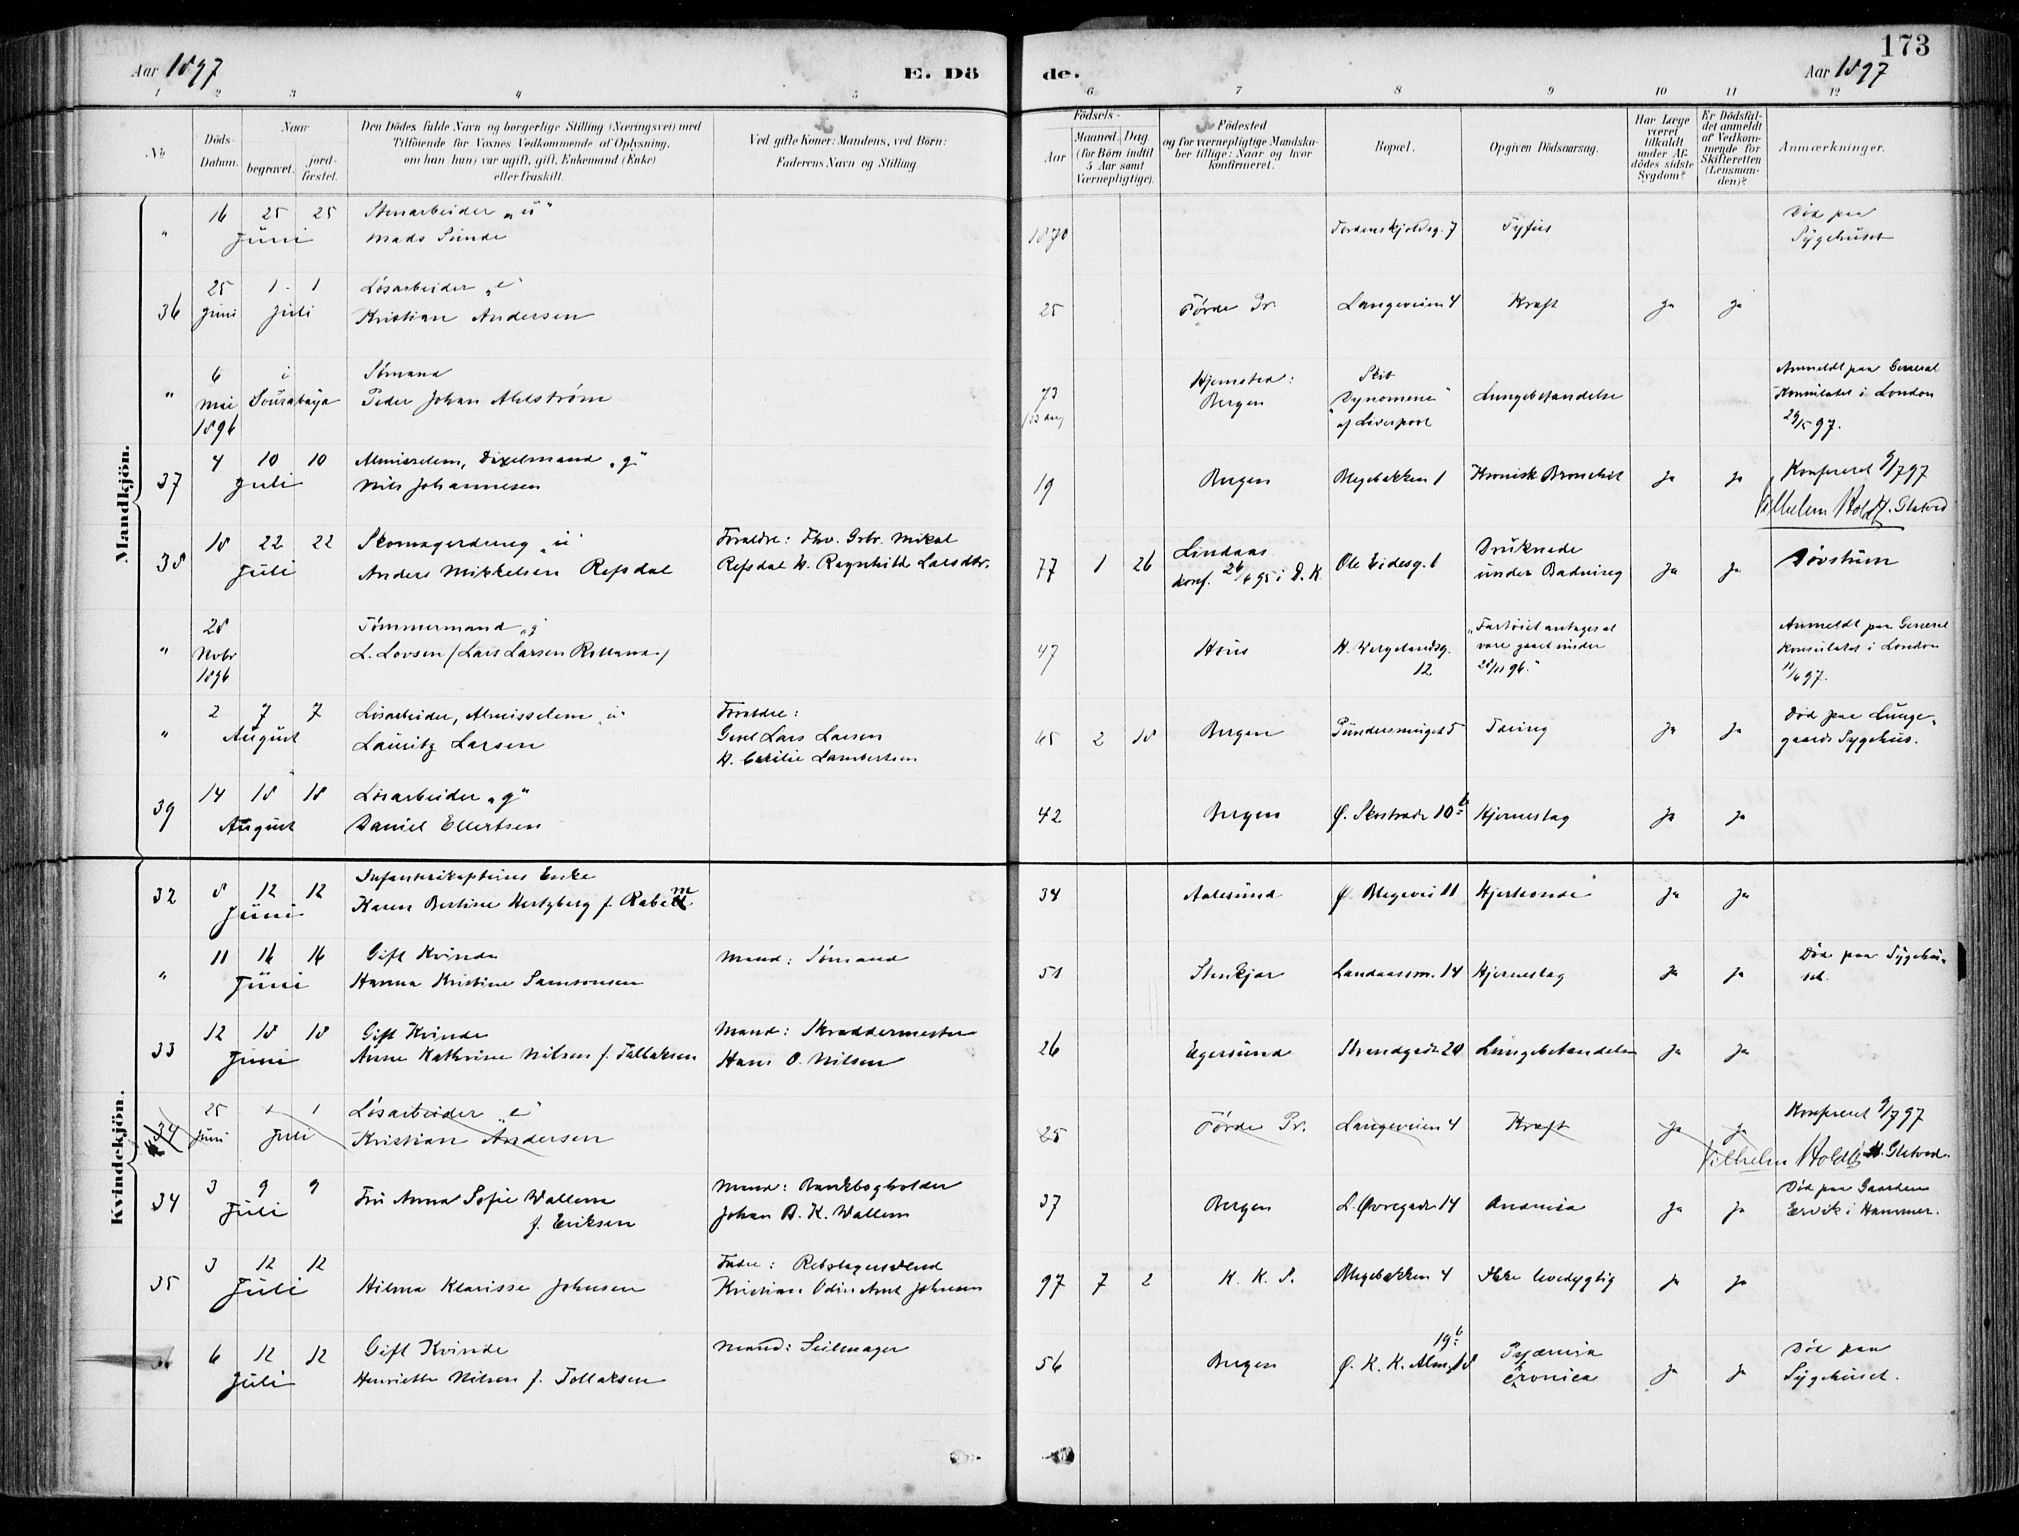 173
Aar 1897
E. Dö
de.
Aar 1897
1 2 3 4 5 6 7 8 9 10 11 12
No
Döds-Datum.
Naar
begravet.
jord-fæstet.
Den Dödes fulde Navn og borgerlige Stilling (Næringsvei) med
Tilföiende for Voxnes Vedkommende af Oplysning,
om han (hun) var ugift, gift, Enkemand (Enke)
eller fraskilt.
Ved gifte Koner: Mandens, ved Börn:
Faderens Navn og Stilling
Födsels-
Aar
Maaned. Dag.
(for Börn indtil
5 Aar samt
Værnepligtige).
Födested
og for værnepligtige Mandska-
ber tillige: Naar og hvor
konfirmeret.
Bopæl.
Opgiven Dödsaarsag.
Har Læge
været
tilkaldt
under Af-
dödes sidste
Sygdom?
Er Dödsfal-
det anmeldt
af Vedkom-
mende for
Skifteretten
(Lensman-
den)?
Anmærkninger.
Mandkjön.
" 16 25 25 Juni
Stenarbeider "u"
Mads Sunde
1870
Tordenskjoldsg. 7
Tyfus
Död paa
Sygehuset
36 25 Juni 1 1 Juli
Løsarbeider "e"
Kristian Andersen
25
Førde Pr.
Langeveien 4
Kræft
Ja Ja
" 6 Mai 1896 i Sourabaya
Sømand
Peder Johan Ahlström
73
Hjemsted:
Bergen
Skib
"Dynomene"
af Liverpool
Lungebetændelse
Anmeldt paa General
Konsulatet i London
29/5 97.
37 4 10 10 Juli
Almisselem, Dixelmand "g"
Nils Johannesen
19
Bergen
Blegebakken 1
Kronisk Bronchit
Ja Ja
Konfereret 9/7 97
Vilhelm Holdt
38 18 22 22 Juli
Skomagerdreng "u"
Anders Mikkelsen Refsdal
Foraldre: Fhv. Grbr. Mikal
Refsdal & Ragnhild Larsdtr.
77 1 26
Lindaas
konf. 26/4 95 i D. K.
Ole Eidesg. 6
Druknede
under Badning
Ja Ja
Døvstum
" 28 Novbr 1896
Tømmermand "g"
L. Lovsen (Lars Larsen Rolland)
47
Hous
H. Wergelandsg.
12
"Fartöiet antages at
være gaaet under
28/11 96."
Anmeldt paa General
Konsulatet i London
11/6 97.
" 2 7 7 August
Løsarbeider, Almisselem "u"
Lauritz Larsen
Foraldre:
Lars Larsen
& Cecilie Lambertsen
65 2 18
Bergen
Tæring
Ja Ja
Död paa Lunge-
gaards Sygehus.
39 14 18 18 August
Løsarbeider "g"
Daniel Ellertsen
42
Bergen
Ø. Skostræde 10 b
Hjerneslag
Ja Ja
Kvindekjön.
32 8 12 12 Juni
Infanterikapteins Enke
Karen Bertine Hertzberg f. Rabe
34
Aalesund
Ø. Blegevei 11
Hjerteonde
Ja Ja
" 11 16 16 Juni
Gift Kvinde
Hanna Kristine Samsonsen
Mand: Sømand
51
Stenkjær
Landaassm. 14
Hjerneslag
Ja Ja
Död paa Sygehu-
set.
33 12 18 18 Juni
Gift Kvinde
Anne Kathrine Nilsen f. Tollaksen
Mand: Skræddermester
Hans O. Nilsen
26
Egersund
Strandgaden 20
Lungebetændelse
Ja Ja
34 25 Juni 1 1 Juli
Løsarbeider "e"
Kristian Andersen
25
Førde Pr.
Langeveien 4
Kræft
Ja Ja
Konfereret 9/7 97
Vilhelm Holdt
34 3 9 9 Juli
Fru Anna Sofie Wallem
f. Eriksen
Mand: Bankbogholder
Johan B. K. Wallem
37
Bergen
L. Øvregade 14
Anæmia
Ja Ja
Död paa Gaarden
Ervik i Hammer.
35 3 12 12 Juli
Hilma Klarisse Johnsen
Fader: Rebslagersvend
Kristian Odin Arnt Johnsen
97 7 2
K. K. S.
Blegebakken 4
Ikke levedygtig
Ja Ja
36 6 12 12 Juli
Gift Kvinde
Henriette Nilsen f. Tollaksen
Mand: Seilmager
56
Bergen
19 b
Ø. K. K. Alm. 18
Pyæmia
cronica
Ja Ja
Död paa
Sygehuset.